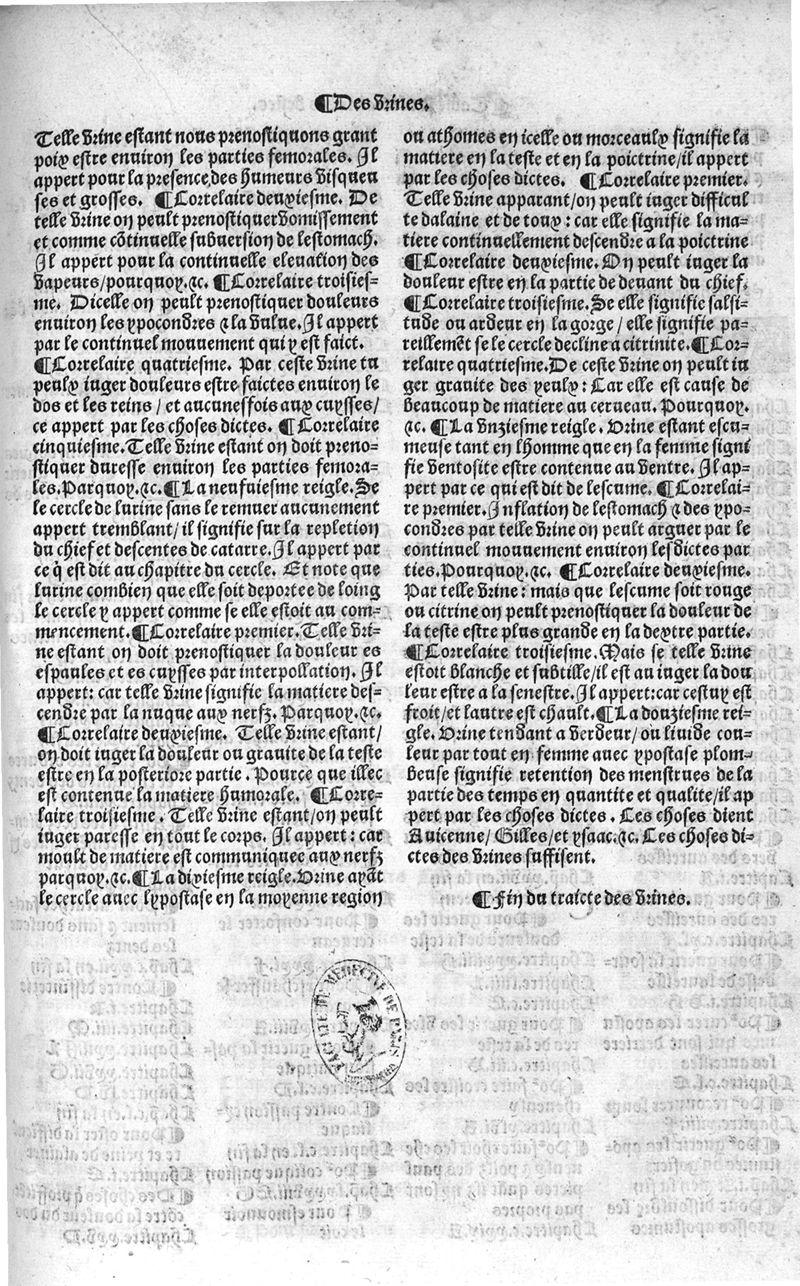 ¶Des vrines.
Telle vrine estant nous prenostiquons grant
poix estre enuiron les parties femorales. Il
appert pour la presence,des humeurs visqueu
ses et grosses. ¶Correlaire deuxiesme. De
telle vrine on peult prenostiquer vomissement
et comme cõtinuelle subuersion de lestomach.
Il appert pour la continuelle eleuation des
vapeurs/pourquoy.⁊c. ¶Correlaire troisies-
me. Dicelle on peult prenostiquer douleurs
enuiron les ypocondres ⁊ la vulue.Il appert
par le continuel mouuement qui y est faict.
¶Correlaire quatriesme. Par ceste vrine tu
peulx iuger douleurs estre faictes enuiron le
dos et les reins / et aucuneffois aux cuysses/
ce appert par les choses dictes. ¶Correlaire
cinquiesme.Telle vrine estant on doit preno-
stiquer duresse enuiron les parties femora-
les.Parquoy.⁊c.¶La neufuiesme reigle.Se
le cercle de lurine sans le remuer aucunement
appert tremblant/il signifie sur la repletion
du chief et descentes de catarre.Il appert par
ce q̃ est dit au chapitre du cercle. Et note que
lurine combien que elle soit deportee de loing
le cercle y appert comme se elle estoit au com-
mencement.¶Correlaire premier.Telle vri-
ne estant on doit prenostiquer la douleur es
espaules et es cuysses par interpollation. Il
appert: car telle vrine signifie la matiere des-
cendre par la nuque aux nerfz. Parquoy.⁊c.
¶Correlaire deuxiesme. Telle vrine estant/
on doit iuger la douleur ou grauite de la teste
estre en la posteriore partie . Pource que illec
est contenue la matiere humorale. ¶Corre-
laire troisiesme . Telle vrine estant/on peult
iuger paresse en tout le corps. Il appert: car
moult de matiere est communiquee aux nerfz
parquoy.⁊c.¶La dixiesme reigle.Vrine ayãt
le cercle auec lypostase en la moyenne region
ou athomes en icelle ou morceaulx signifie la
matiere en la teste et en la poictrine/il appert
par les choses dictes. ¶Correlaire premier.
Telle vrine apparant/on peult iuger difficul
te dalaine et de toux : car elle signifie la ma-
tiere continuellement descendre a la poictrine
¶Correlaire deuxiesme. On peult iuger la
douleur estre en la partie de deuant du chief.
¶Correlaire troisiesme.Se elle signifie salsi-
tude ou ardeur en la gorge / elle signifie pa-
reillemẽt se le cercle decline a citrinite.¶Cor-
relaire quatriesme.De ceste vrine on peult iu
ger grauite des yeulx : Car elle est cause de
beaucoup de matiere au cerueau. Pourquoy.
⁊c. ¶La vnziesme reigle. Vrine estant escu-
meuse tant en lhomme que en la femme signi
fie ventosite estre contenue au ventre. Il ap-
pert par ce qui est dit de lescume. ¶Correlai-
re premier.Inflation de lestomach ⁊ des ypo-
condres par telle vrine on peult arguer par le
continuel mouuement enuiron lesdictes par
ties.Pourquoy.⁊c. ¶Correlaire deuxiesme.
Par telle vrine: mais que lescume soit rouge
ou citrine on peult prenostiquer la douleur de
la teste estre plus grande en la dextre partie.
¶Correlaire troisiesme.Mais se telle vrine
estoit blanche et subtille/il est au iuger la dou
leur estre a la senestre.Il appert:car cestuy est
froit/et lautre est chault.¶La douziesme rei-
gle. Vrine tendant a verdeur/ou liuide cou-
leur par tout en femme auec ypostase plom-
beuse signifie retention des menstrues de la
partie des temps en quantite et qualite/il ap
pert par les choses dictes . Ces choses dient
Auicenne/ Gilles/et ysaac.⁊c. Ces choses di-
ctes des vrines suffisent.
¶Fin du traicte des vrines.
FACULTE DE MEDECINE DE PARIS